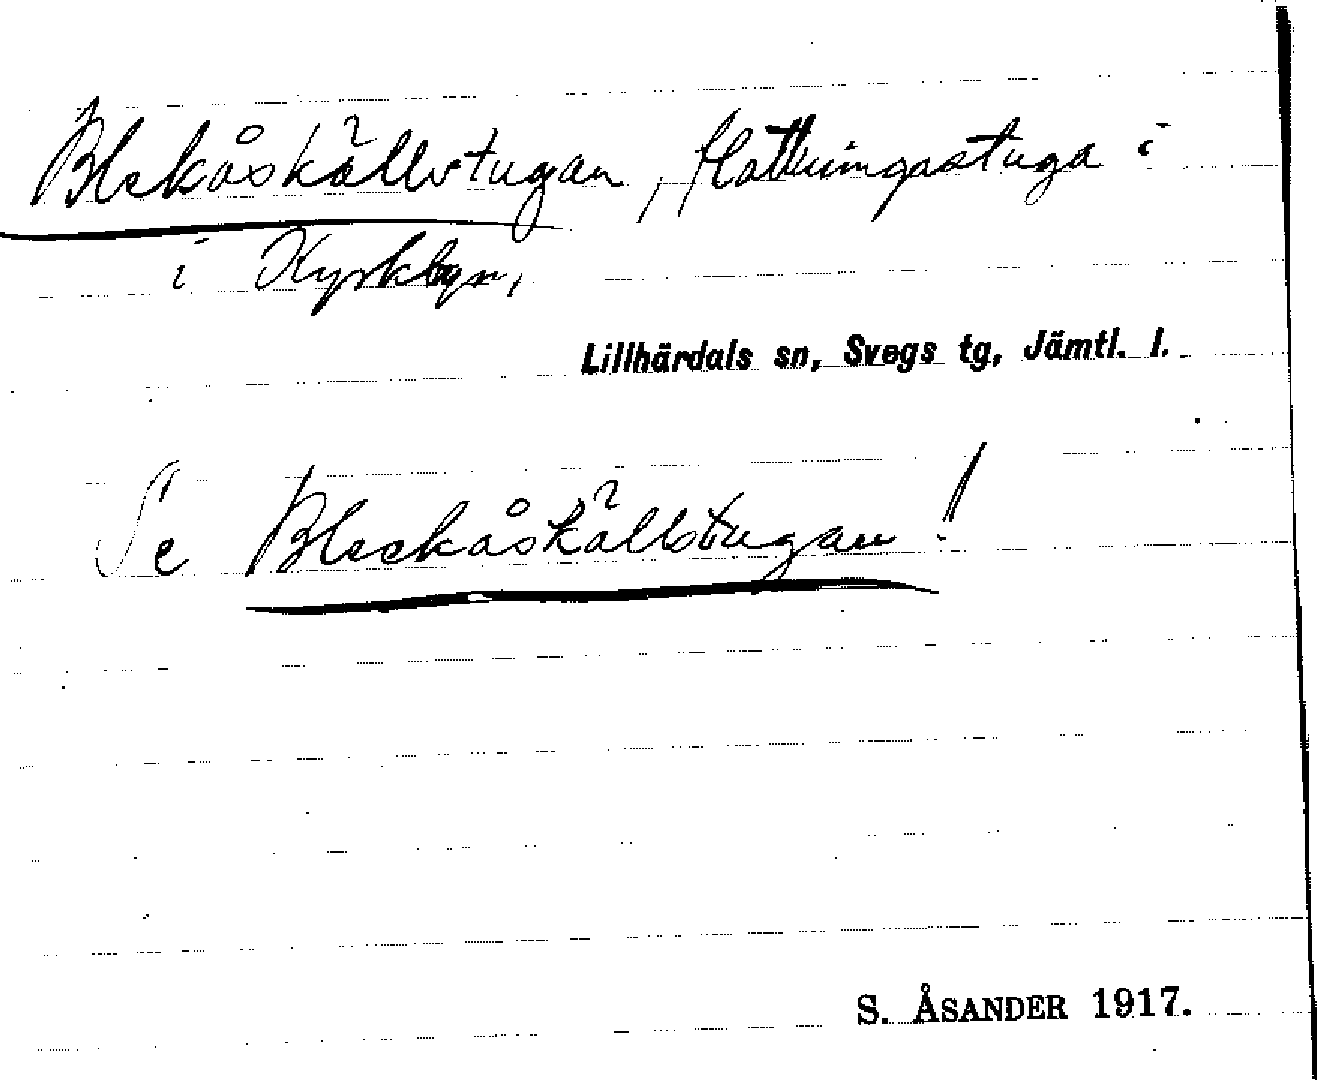 Blekåskällstugan, flottningsstuga i
i Kyrkbyn,
Lillhärdals sn, Svegs tg, Jämtl. l.
Se Bleckåskällstugan!
S. ÅSANDER 1917.